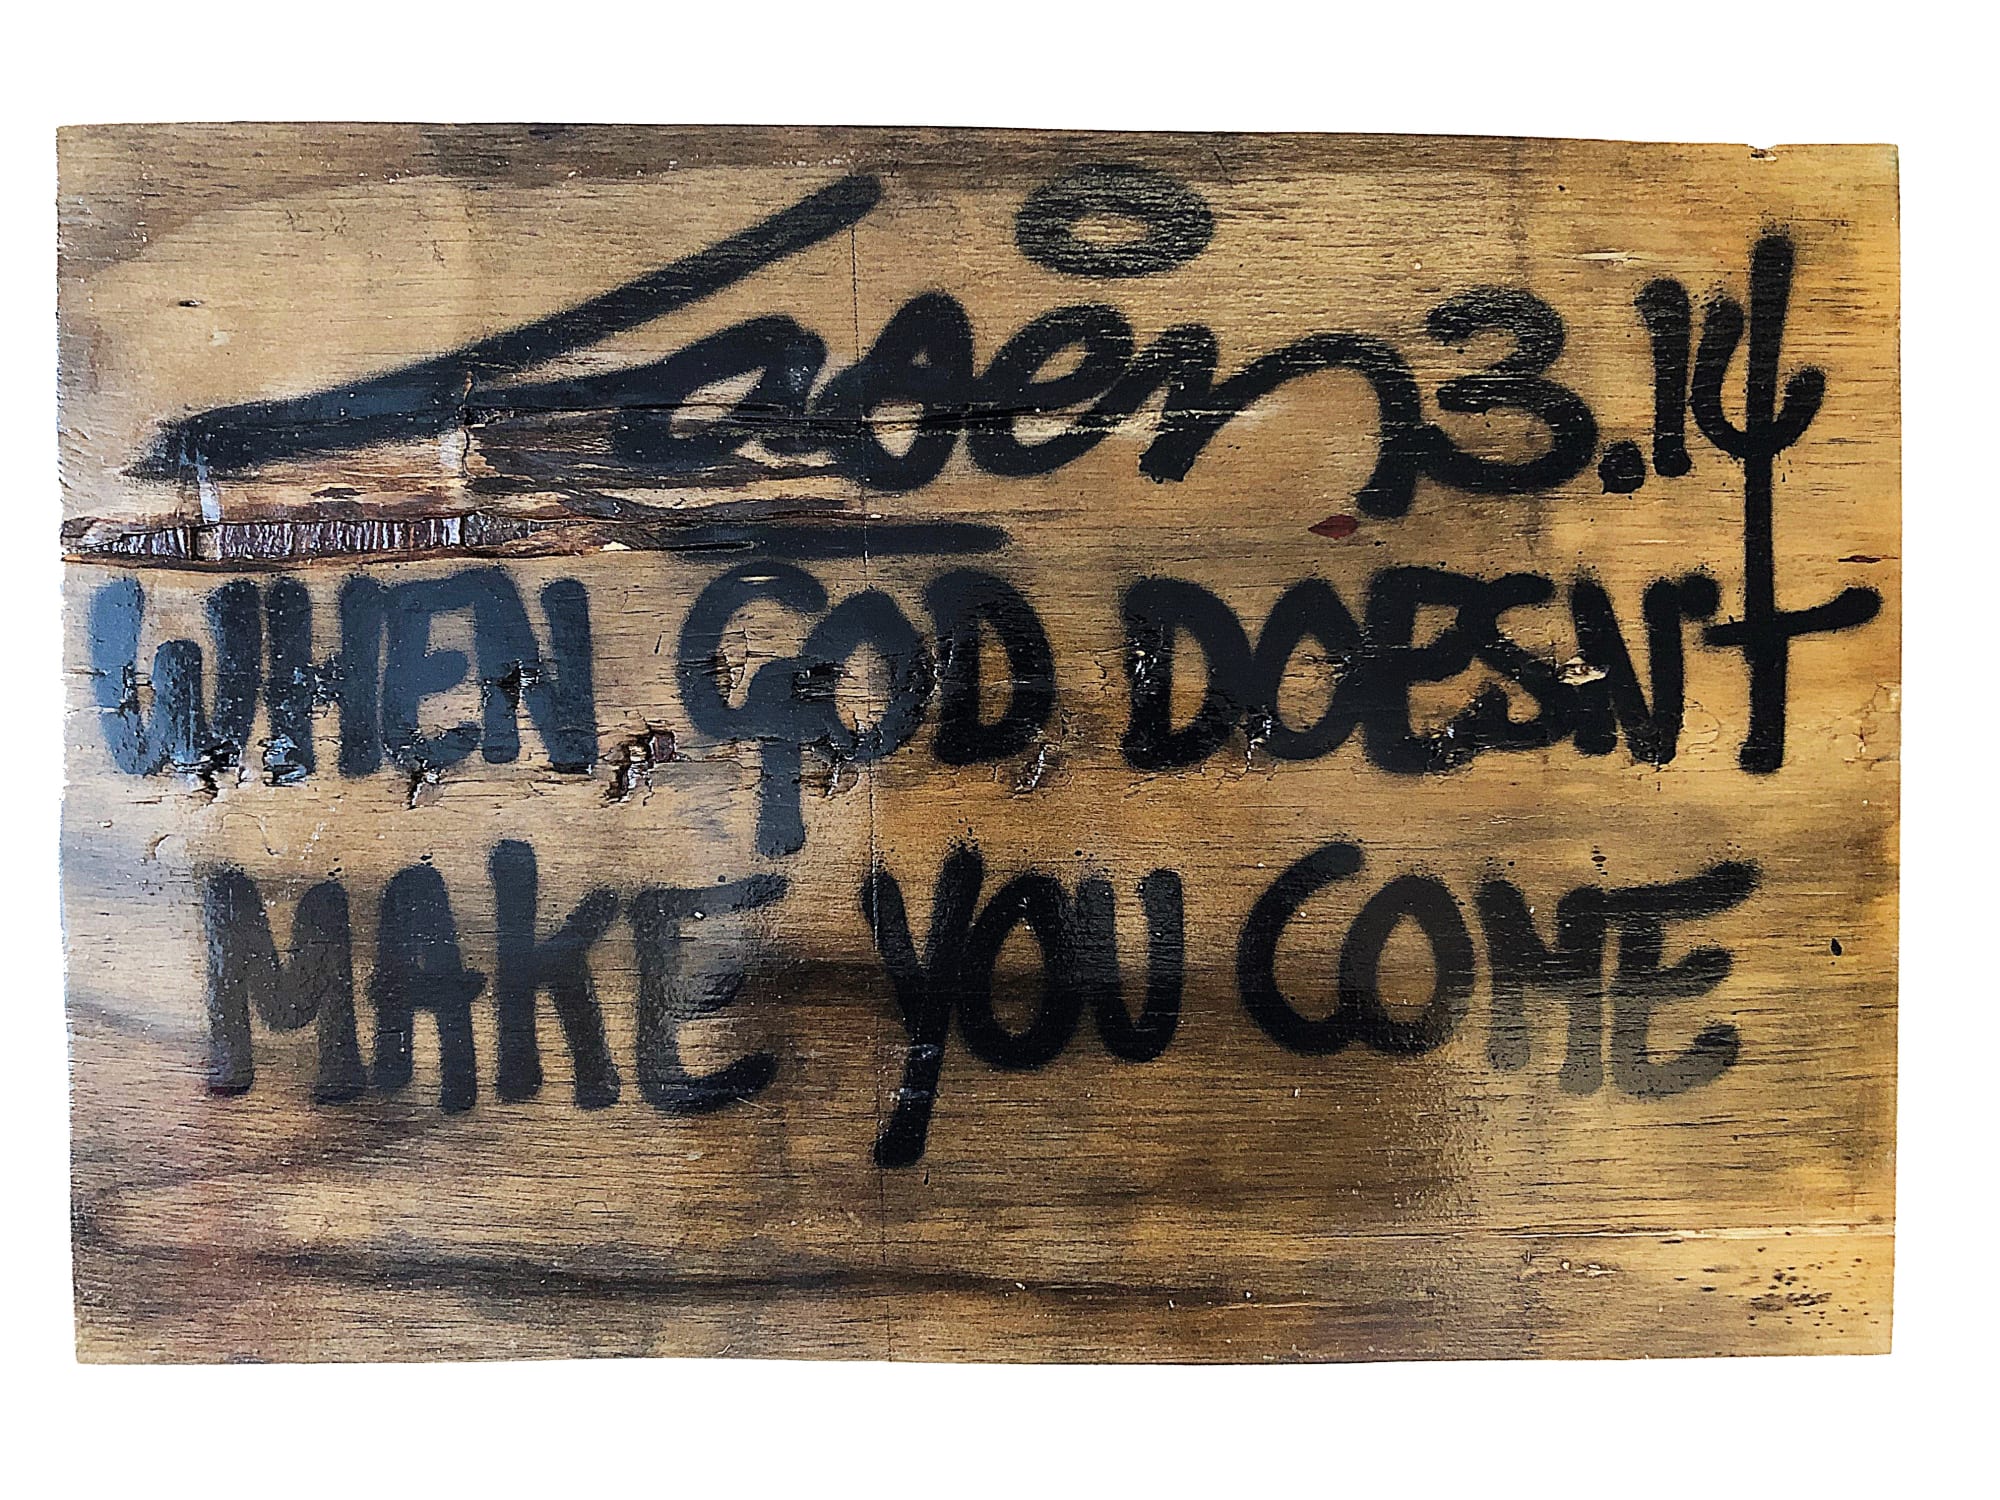 Laser 3.14
WHEN GOD DOESN't
MAKE YOU COME